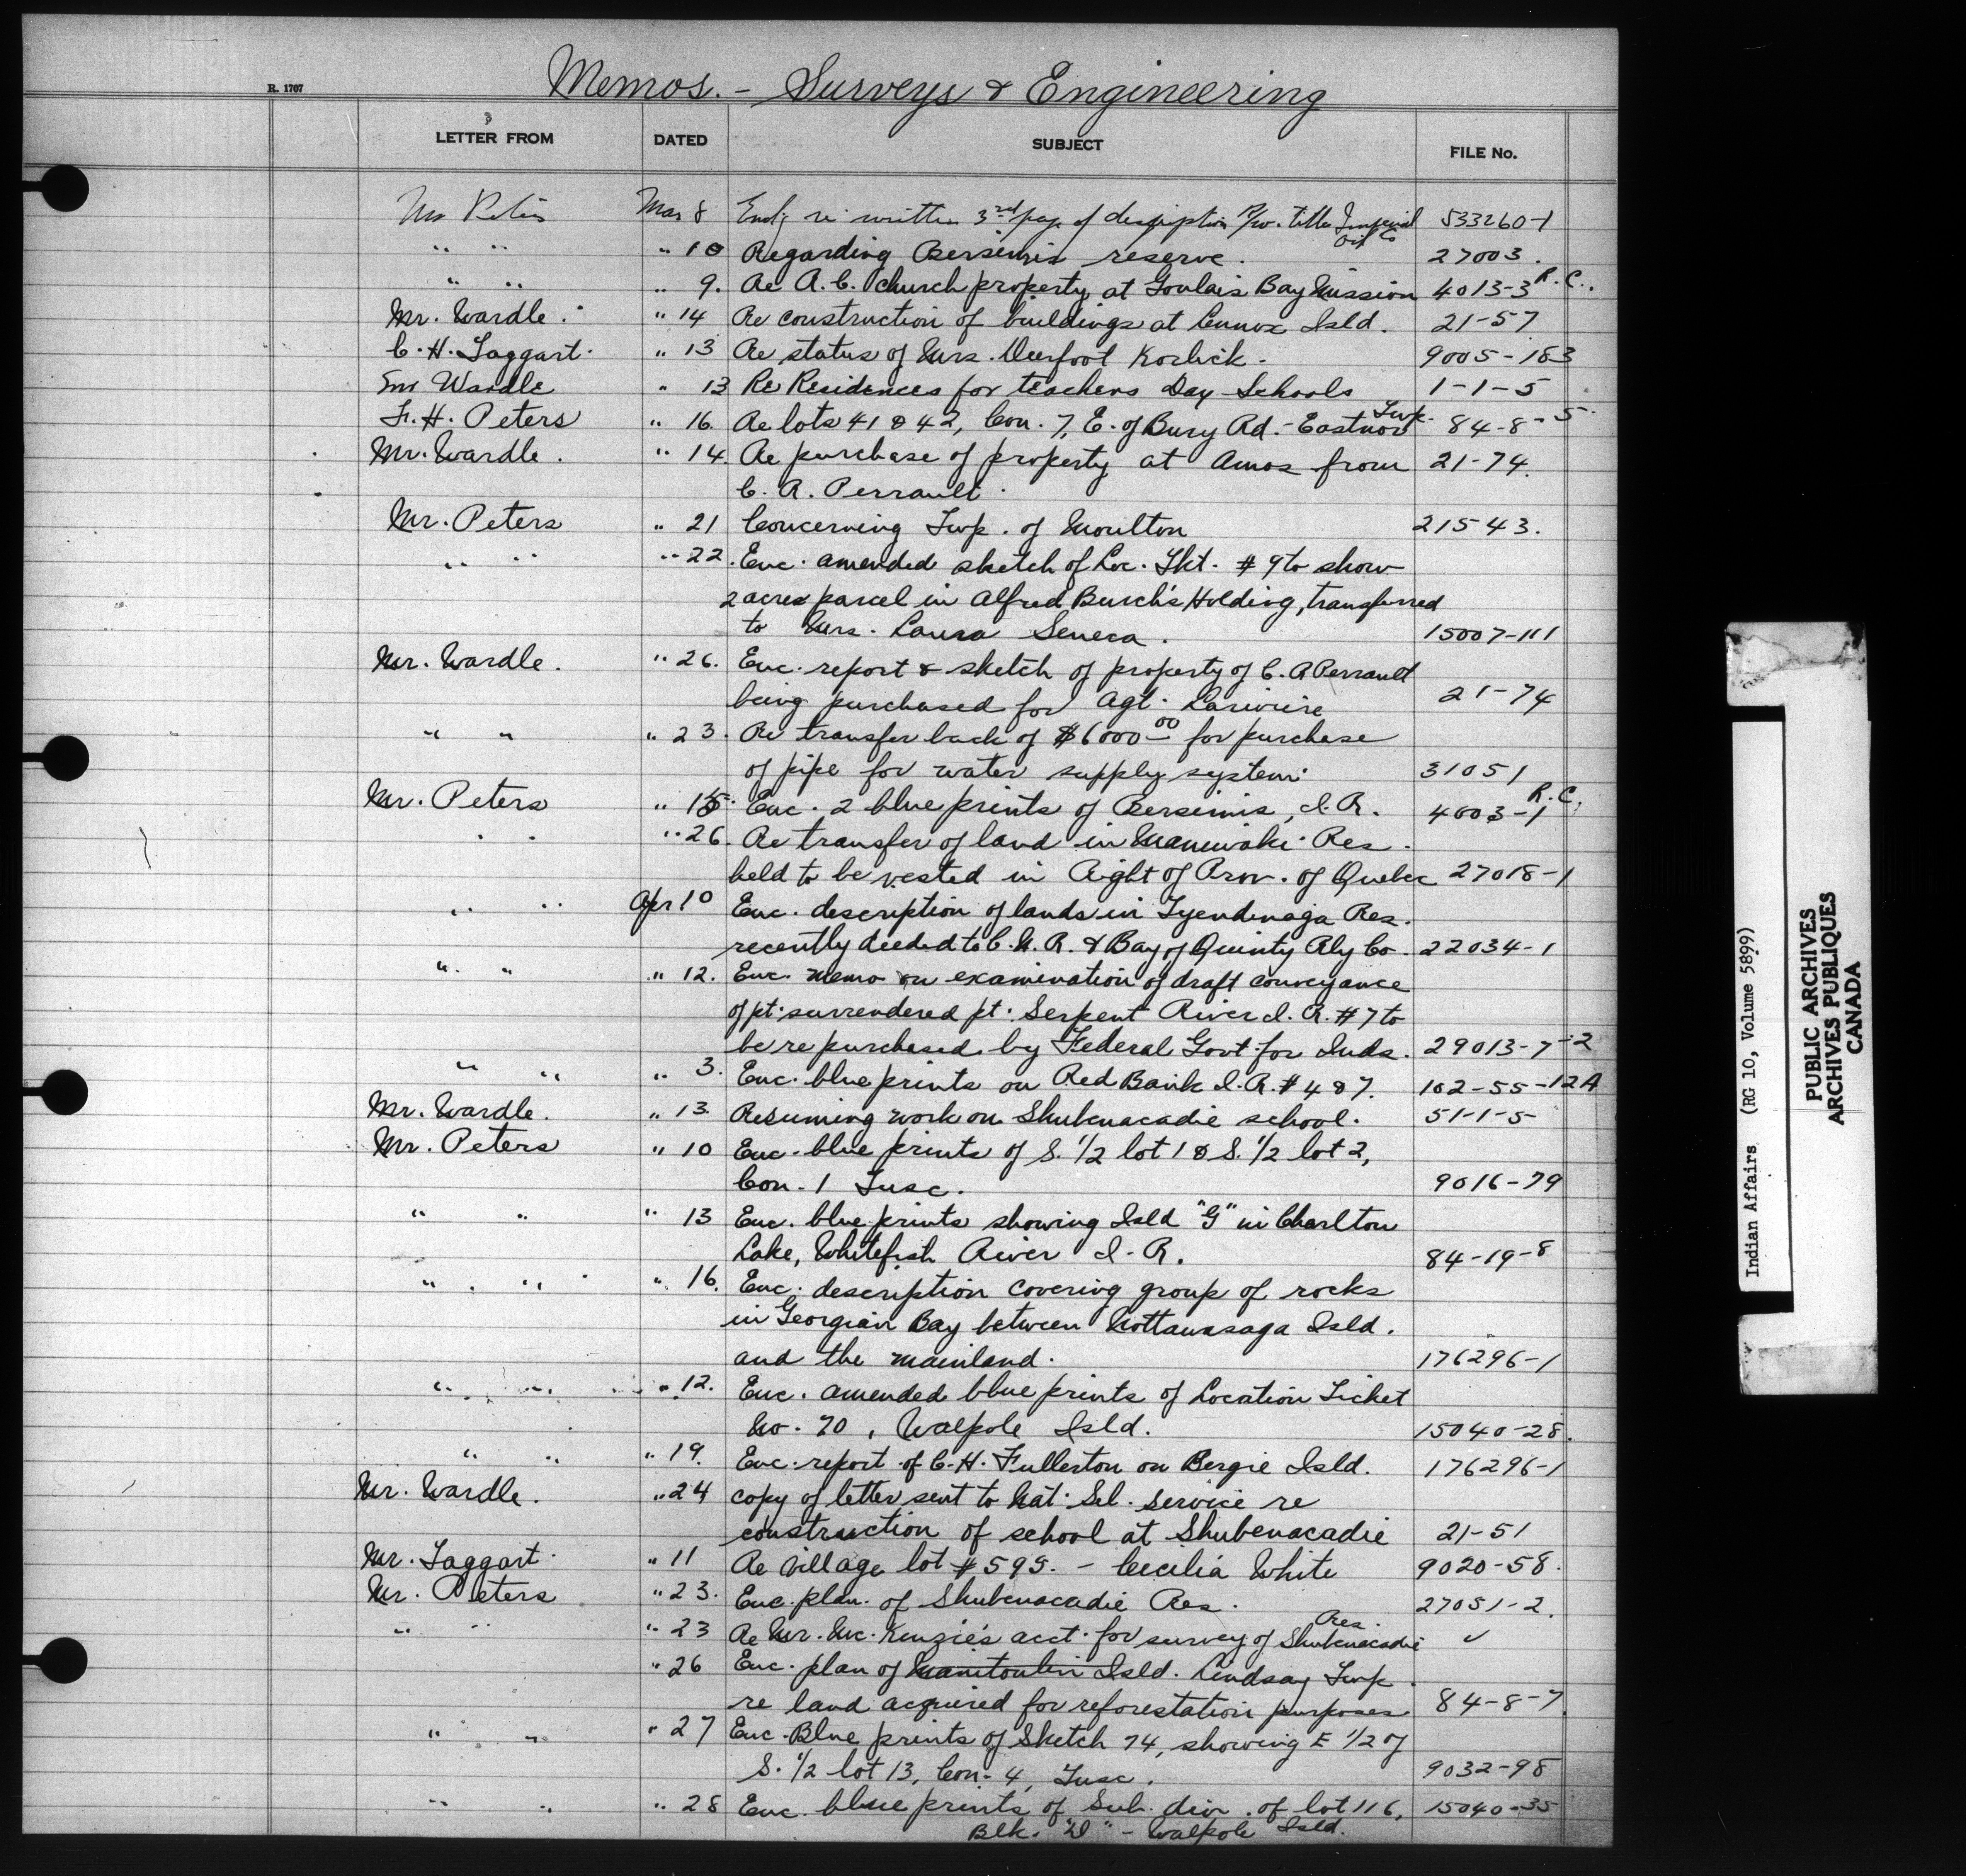 Memos. - Surveys & Engineering
R. 1707
LETTER FROM DATED SUBJECT FILE No.
Mr Peters Mar 8 Encl'g re written 3rd page of description R/w. title Imperial Oil Co 533260-1
" " " 10 Regarding Bersimis reserve. 27003.
" " " 9. Re R.C. church property at Goulais Bay Mission 4013-3 R.C.
Mr. Wardle. " 14 Re construction of buildings at Lennox Isld. 21-57
C.H. Taggart. " 13 Re status of Mrs. Deerfoot Kozlick. 9005-183
Mr Wardle " 13 Re Residences for teachers Day Schools 1-1-5
F.H. Peters " 16. Re lots 41 & 42, Con. 7, E. of Bury Rd. - Eastnor Twp. 84-8-5.
Mr. Wardle. " 14. Re purchase of property at Amos from 21-74.
C. A. Perrault.
Mr. Peters " 21 Concerning Twp. of Moulton 21543.
" " " 22. Enc. amended sketch of Loc. Tkt. #9 to show
2 acres parcel in Alfred Burch's Holding, transferred
to Mrs. Laura Seneca. 15007-111
Mr. Wardle. " 26. Enc. report & sketch of property of C. A Perrault
being purchased for Agt. Lariviere 21-74
" " " 23. Re transfer back of $6000 00 for purchase
of pipe for water supply system. 31051
Mr. Peters " 15. Enc. 2 blue prints of Bersimis, I.R. 4003-1 R.C.
" " " 26. Re transfer of land in Maniwaki Res.
held to be vested in Right of Prov. of Quebec 27018-1
" " Apr 10 Enc. description of lands in Tyendinaga Res.
recently deeded to C.N.R. & Bay of Quinty Rly Co. 22034-1
" " " 12. Enc. memo on examination of draft conveyance
of pt. surrendered pt. Serpent River I.R. #7 to
be re purchased by Federal Govt. for Inds. 29013-7-2
" " " 3. Enc. blue prints on Red Bank I.R. #4 & 7. 162-55-12A
Mr. Wardle. " 13. Resuming work on Shubenacadie school. 51-1-5
Mr. Peters " 10 Enc. blue prints of S. 1/2 lot 1 & S. 1/2 lot 2,
Con. 1 Tusc. 9016-79
" " " 13 Enc. blue prints showing Isld "G" in Charlton
Lake, Whitefish River I.R. 84-19-8
" " " 16. Enc. description covering group of rocks
in Georgian Bay between Nottawasaga Isld.
and the mainland. 176296-1
" " " 12. Enc. amended blue prints of Location Ticket
No. 70, Walpole Isld. 15040-28.
" " " 19. Enc. report of C.H. Fullerton on Bergie Isld. 176296-1
Mr. Wardle. " 24 copy of letter sent to Nat. Sel. Service re
construction of school at Shubenacadie 21-51
Mr. Taggart. " 11 Re village lot #595. - Cecilia White 9020-58.
Mr. Peters " 23. Enc. plan. of Shubenacadie Res. 27051-2.
" " " 23 Re Mr. McKenzie's acct. for survey of Shubenacadie Res. ✓
" 26 Enc. plan of Manitoulin Isld. Lindsay Twp.
re land acquired for reforestation purposes 84-8-7.
" " " 27 Enc. Blue prints of Sketch 74, showing E 1/2 of
S. 1/2 lot 13, Con. 4, Tusc. 9032-98
" " " 28 Enc. blue prints of Sub. div. of lot 116, 15040-35
Blk. "D" - Walpole Isld.
Indian Affairs (RG 10, Volume 5899)
PUBLIC ARCHIVES
ARCHIVES PUBLIQUES
CANADA